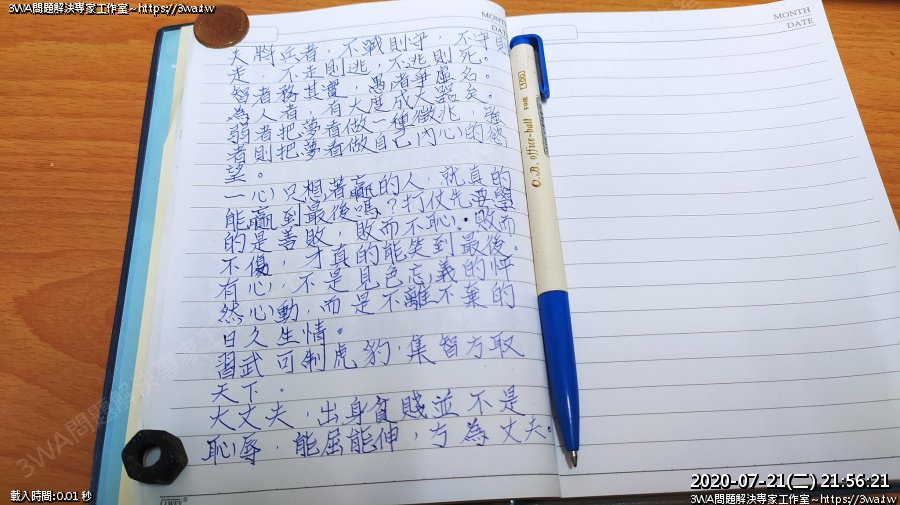 3WA問題解決專家工作室~https://3wa.tw
3WA問題解決專家工作室~https://3wa.tw
MONTH
DATE
MONTH
DATE
夫將兵者，不戰則守，不守則
走，不走則逃，不逃則死。
智者務其實，愚者爭虛名。
為人者，有大度成大器矣。
弱者把夢看做一種徵兆，強
者則把夢看做自己內心的慾
望。
一心只想著贏的人，就真的
能贏到最後嗎？打仗先要學
的是善敗，敗而不恥，敗而
不傷，才真的能笑到最後。
有心，不是見色忘義的怦
然心動，而是不離不棄的
日久生情。
習武可制虎豹，集智方取
天下。
大丈夫，出身貧賤並不是
恥辱，能屈能伸，方為丈夫。
O.B. office-ball
3WA問題解決專家工作室
載入時間:0.01 秒
2020-07-21(二) 21:56:21
3WA問題解決專家工作室~https://3wa.tw